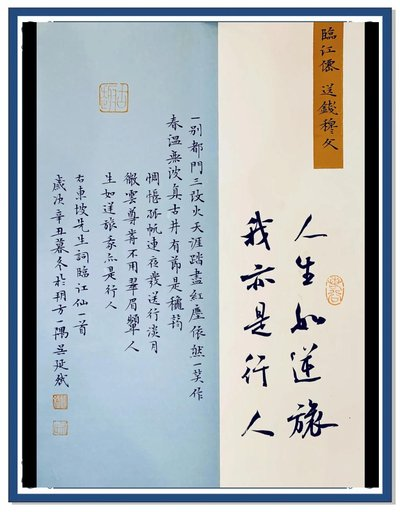 臨江僊 送錢穆父
人生如逆旅
我亦是行人
一别都門三改火天涯踏盡紅塵依然一笑作
春溫無波真古井有節是穐筠
惆悵孤帆連夜發送行淡月
微雲尊歬不用翠眉顰人
生如逆旅我亦是行人
右東坡先生詞臨江仙一首
歲次辛丑暮冬於朔方一隅吴延斌